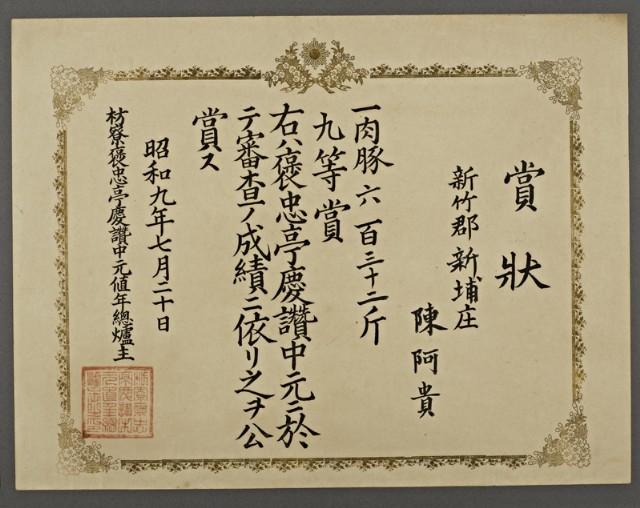 賞狀
新竹郡新埔庄
陳阿貴
一肉豚六百三十二斤
九等賞
右ハ褒忠亭慶讚中元ニ於
テ審查ノ成績ニ依リ之ヲ公
賞ス
昭和九年七月二十日
枋寮褒忠亭慶讚中元值年總爐主